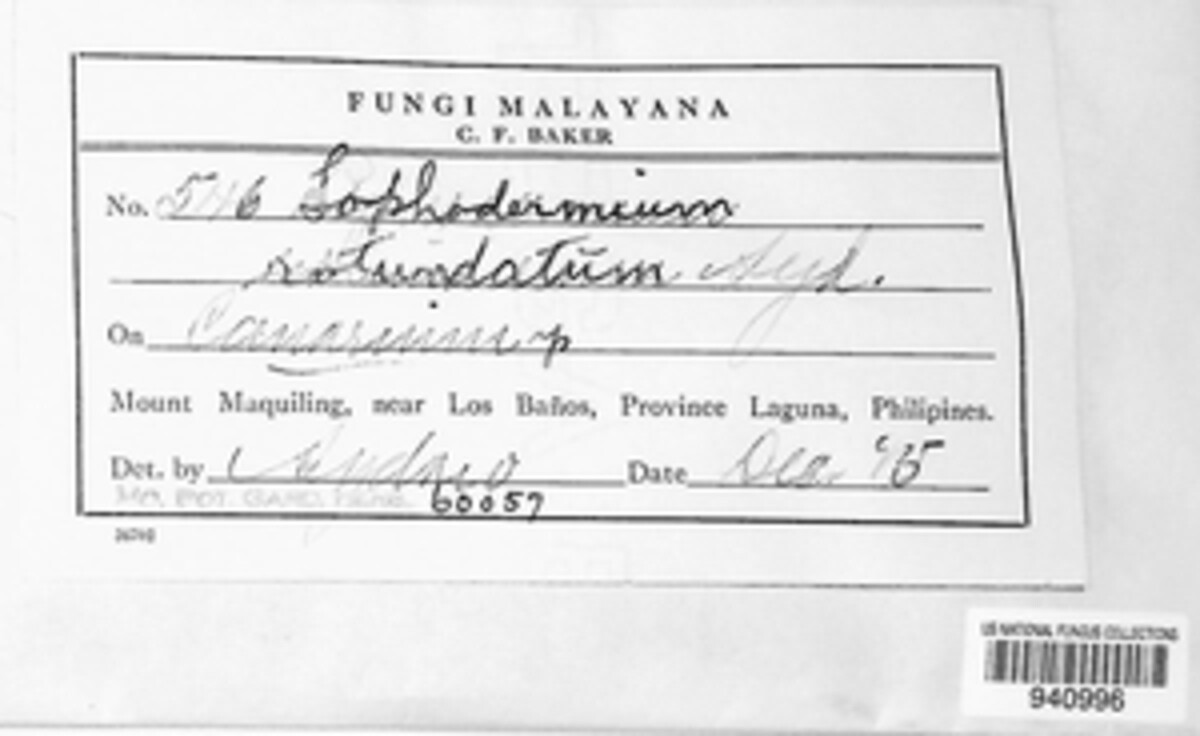 FUNGI MALAYANA
C. F. BAKER
No. 546 Lophodermium
rotundatum Syd.
On Canarium sp
Mount Maquiling, near Los Baños, Province Laguna, Philipines.
Det. by Sydow Date Dec. '15
MO. BOT. GARD. HERB. 60057
US NATIONAL FUNGUS COLLECTIONS
940996